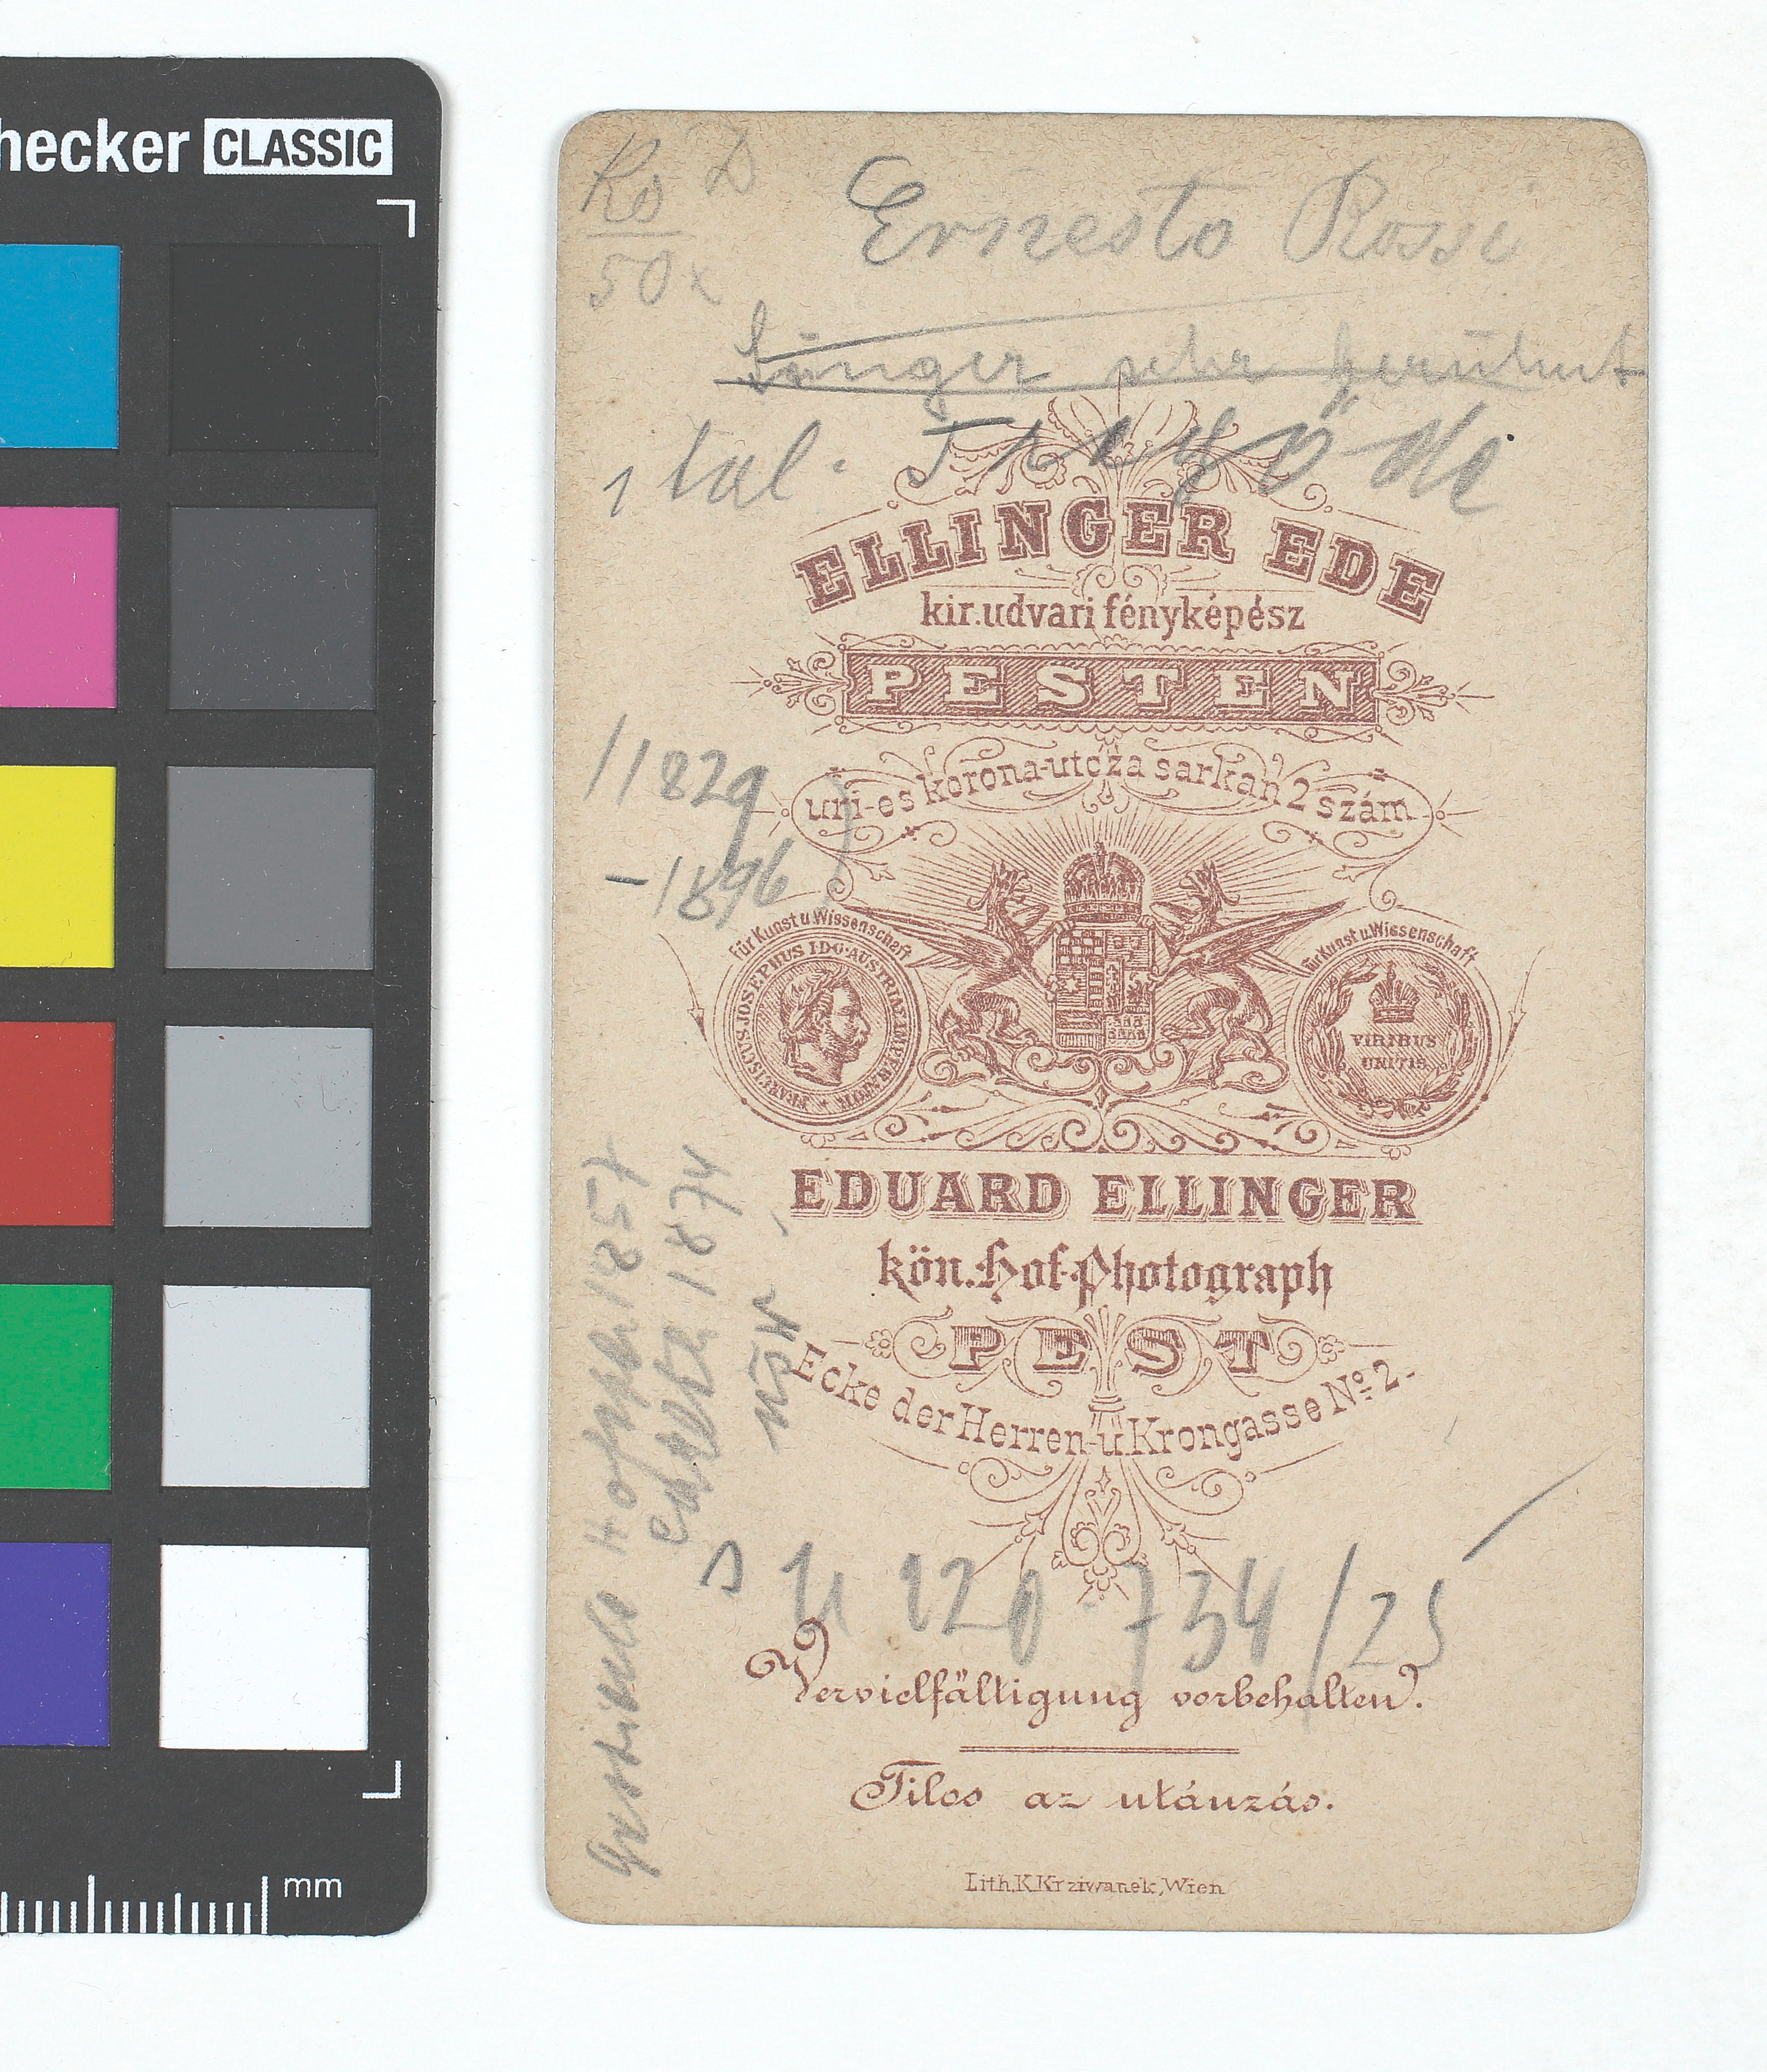 hecker CLASSIC
Ro D
50x
Ernesto Rossi
Sänger sehr berühmt
ital. Tragöde
ELLINGER EDE
kir. udvari fényképész
PESTEN
uri-es korona-utcza sarkan 2 szám
/1829
-1896)
Für Kunst u Wissenschaft
Für Kunst u. Wissenschaft
FRANCISCUS JOSEPHUS I.D.G. AUSTRIAE IMPERATOR
VIRIBUS
UNITIS
EDUARD ELLINGER
kön. Hof-Photograph
PEST
Ecke der Herren- u. Krongasse No. 2.
1857
1874
N 120 734/25
Vervielfältigung vorbehalten.
Tilos az utánzás.
Lith. K. Krziwanek, Wien
mm